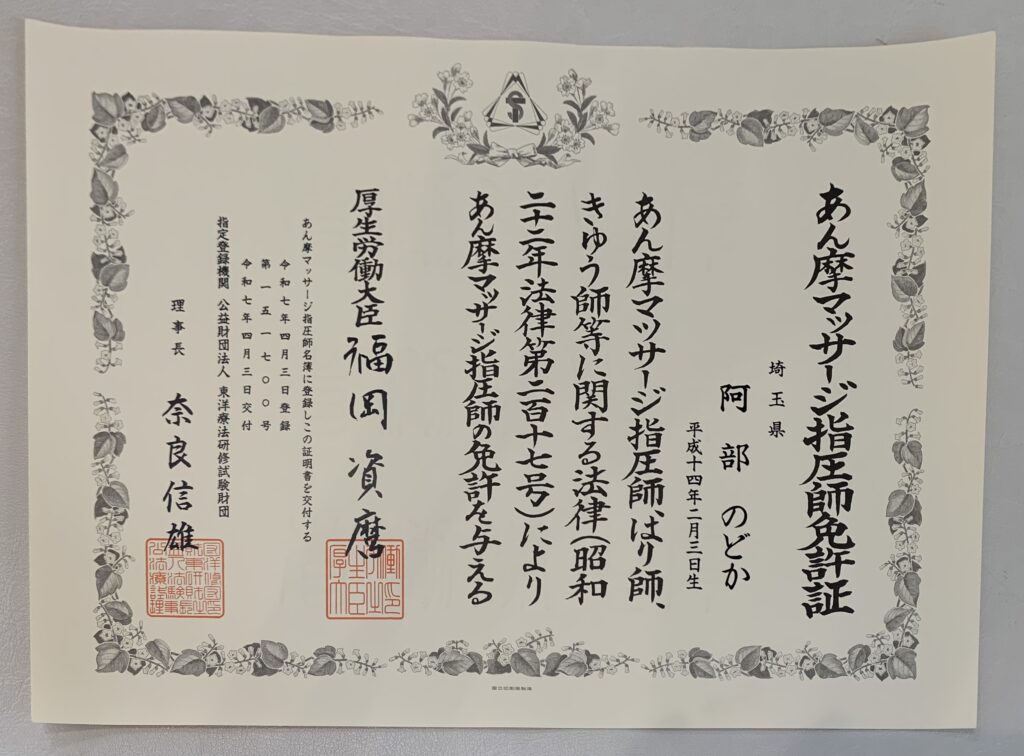 あん摩マッサージ指圧師免許証
埼玉県
阿部 のどか
平成十四年二月三日生
あん摩マツサージ指圧師、はり師、
きゆう師等に関する法律(昭和
二十二年法律第二百十七号)により
あん摩マッサージ指圧師の免許を与える
厚生労働大臣 福岡 資麿
あん摩マッサージ指圧師名簿に登録しこの証明書を交付する
令和七年四月三日登録
第一五一七〇〇号
令和七年四月三日交付
指定登録機関 公益財団法人 東洋療法研修試験財団
理事長 奈良信雄
国立印刷局製造